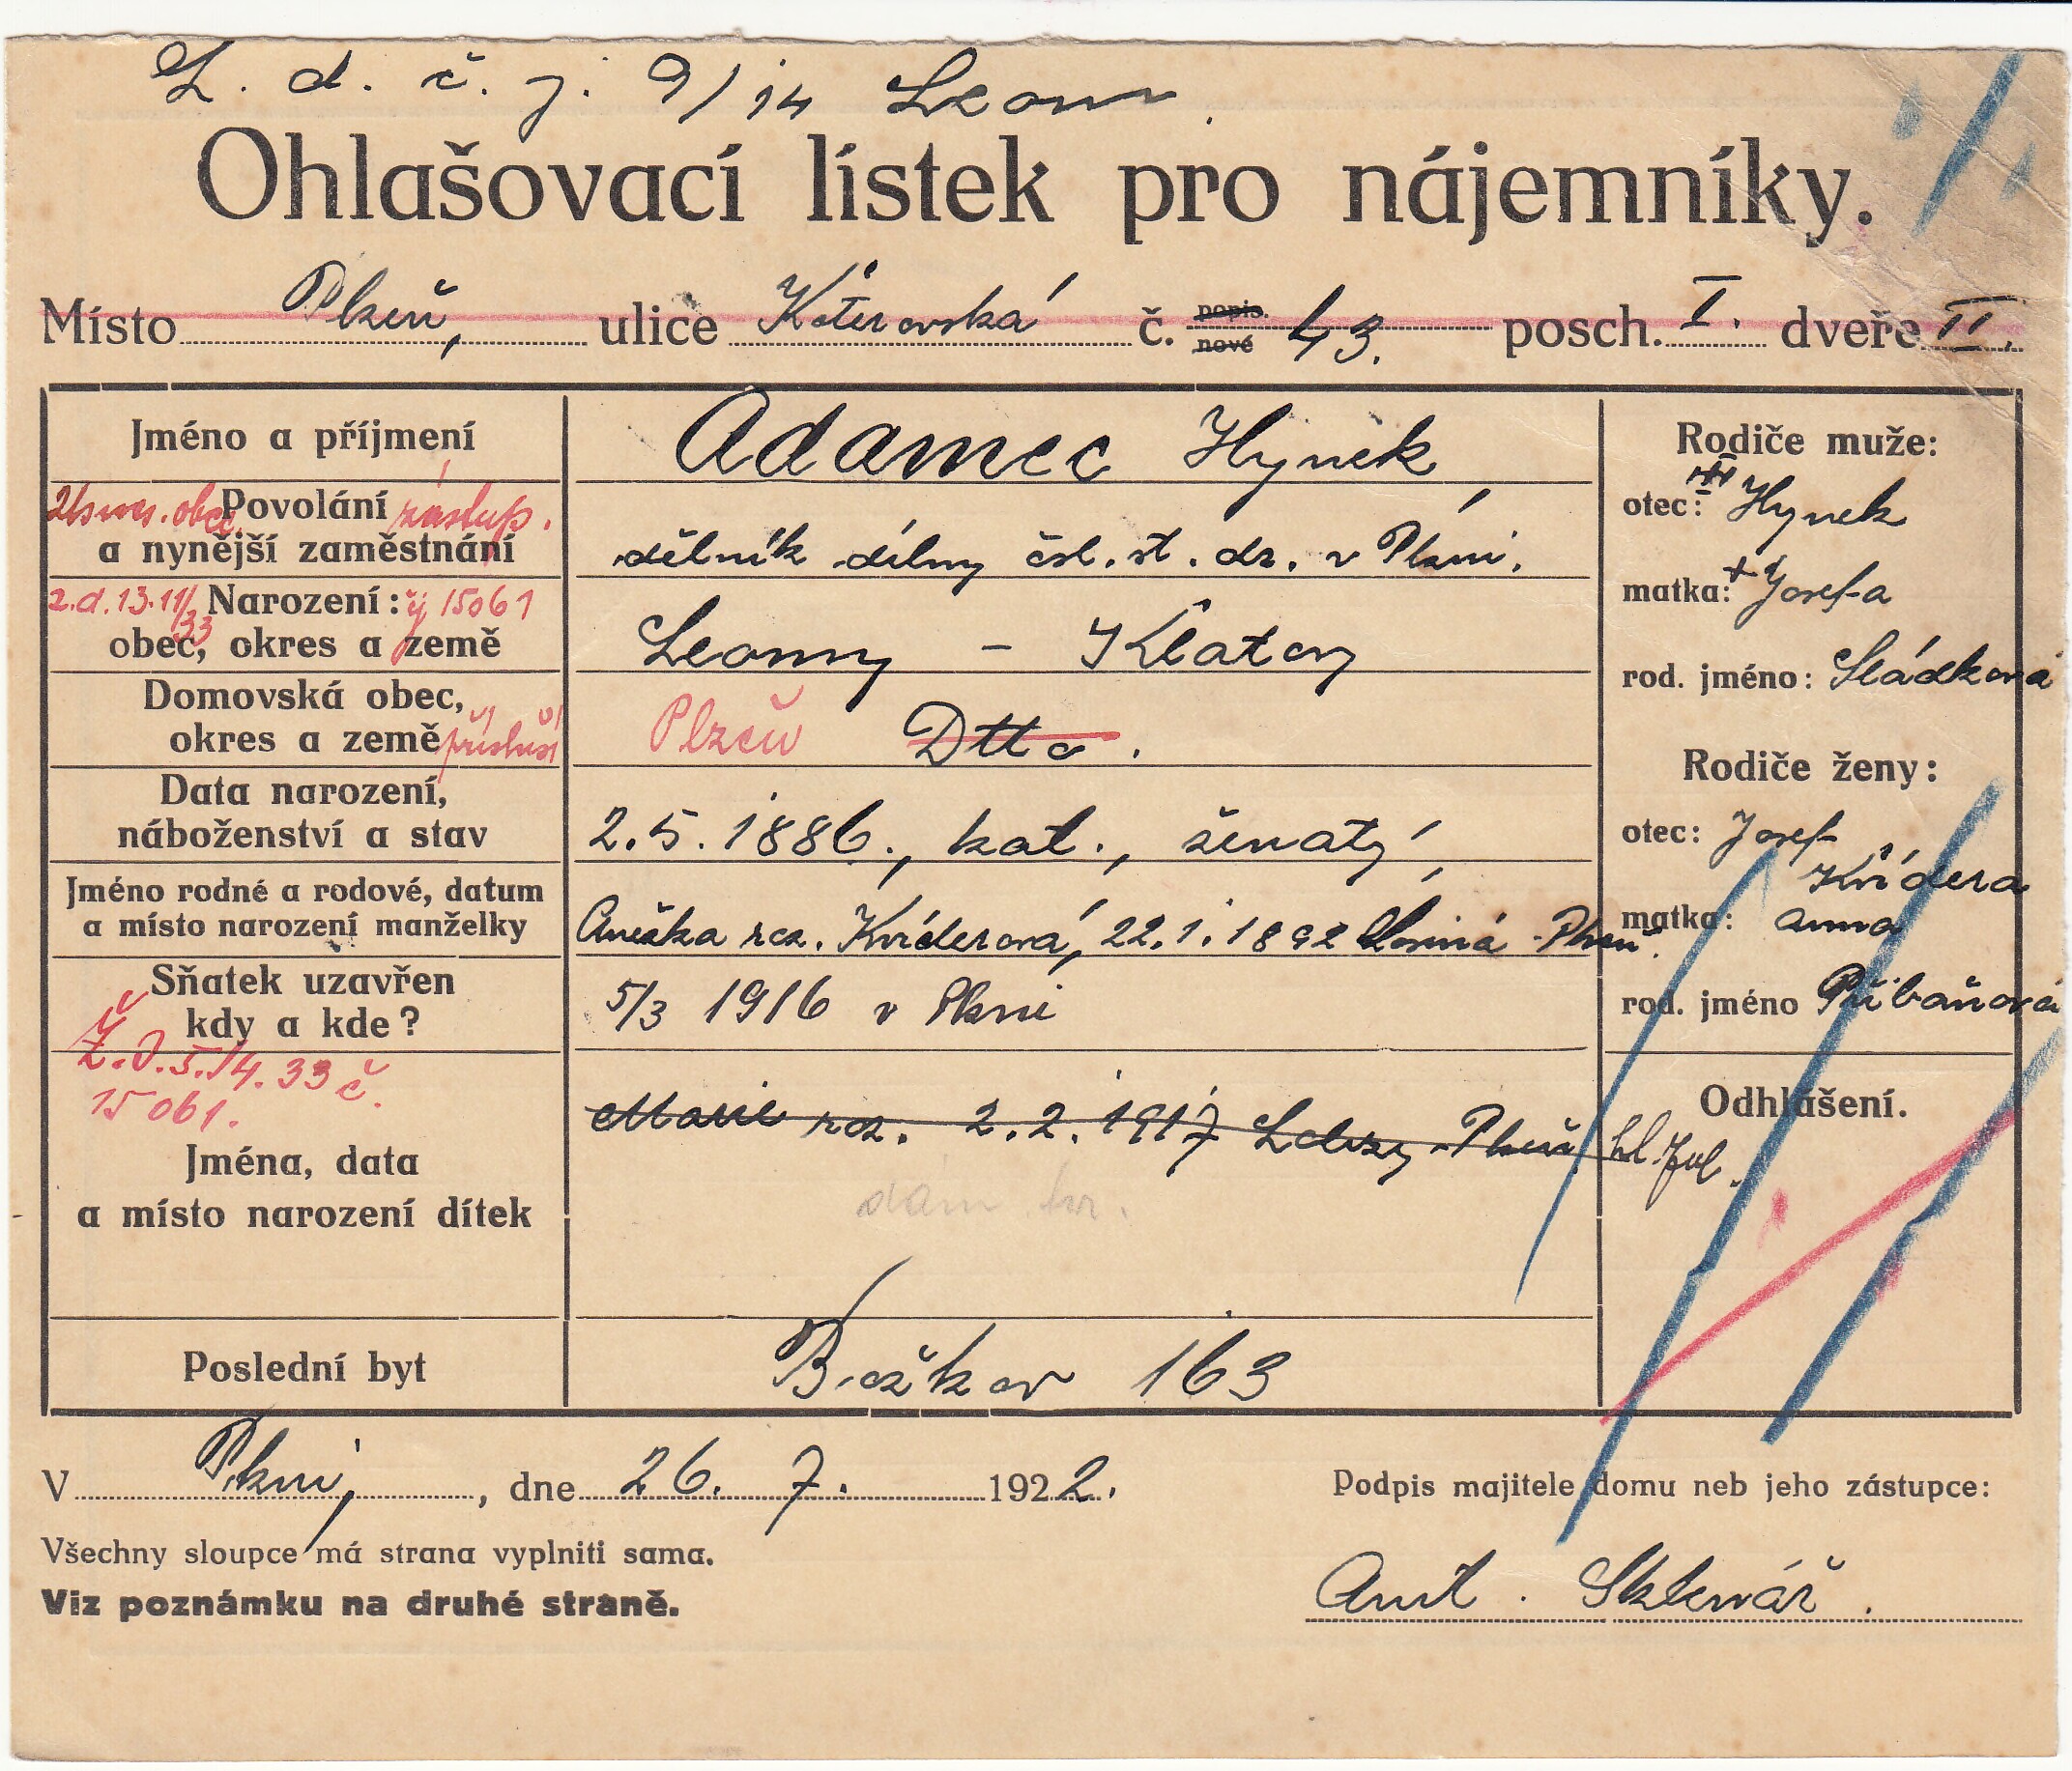 L. d. č. j. 9/14 Leom
Ohlašovací lístek pro nájemníky.
Místo Plzeň, ulice Koterovská č. popis. nové 43. posch. I. dveře II.
Jméno a příjmení Adamec Hynek,
Rodiče muže:
Usnes. obec. zastup.
Povolání a nynější zaměstnání
dělník dílny čsl. st. dr. v Plzni.
otec: Hynek
z. d. 13.11/33 čj 15061
Narození:
obec, okres a země
Leomy - Klatovy
matka: + Josefa
rod. jméno: Sládková
Domovská obec,
okres a země přísluší
Plzeň Dtto.
Rodiče ženy:
Data narození,
náboženství a stav
2.5.1886., kat., ženatý,
otec: Josef Kvídera
Jméno rodné a rodové, datum
a místo narození manželky
Anežka roz. Kvíderová, 22.1.1892 Plzeň.
matka: Anna
Sňatek uzavřen
kdy a kde?
5/3 1916 v Plzni
rod. jméno Přibáňová
Ž. d. 5./4. 33 č.
15061.
Odhlášení.
Jména, data
a místo narození dítek
Marie roz. 2.2.1917 Lobzy-Plzeň
Poslední byt Božkov 163
V Plzni, dne 26. 7. 1922.
Podpis majitele domu neb jeho zástupce:
Všechny sloupce má strana vyplniti sama.
Viz poznámku na druhé straně.
Ant. Sklenář.